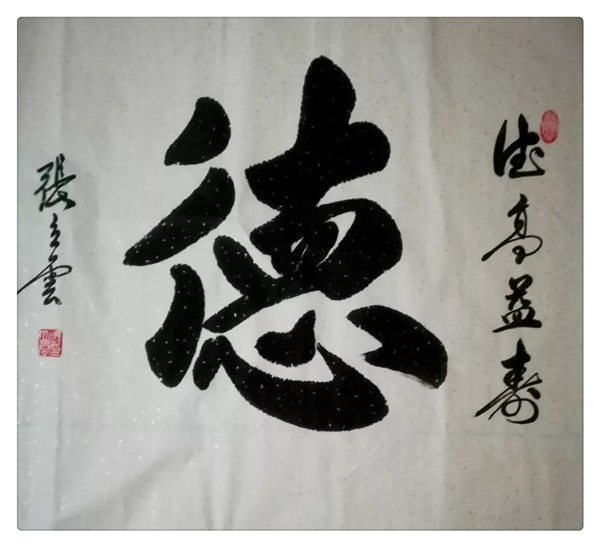 德高益寿
德
張立雲